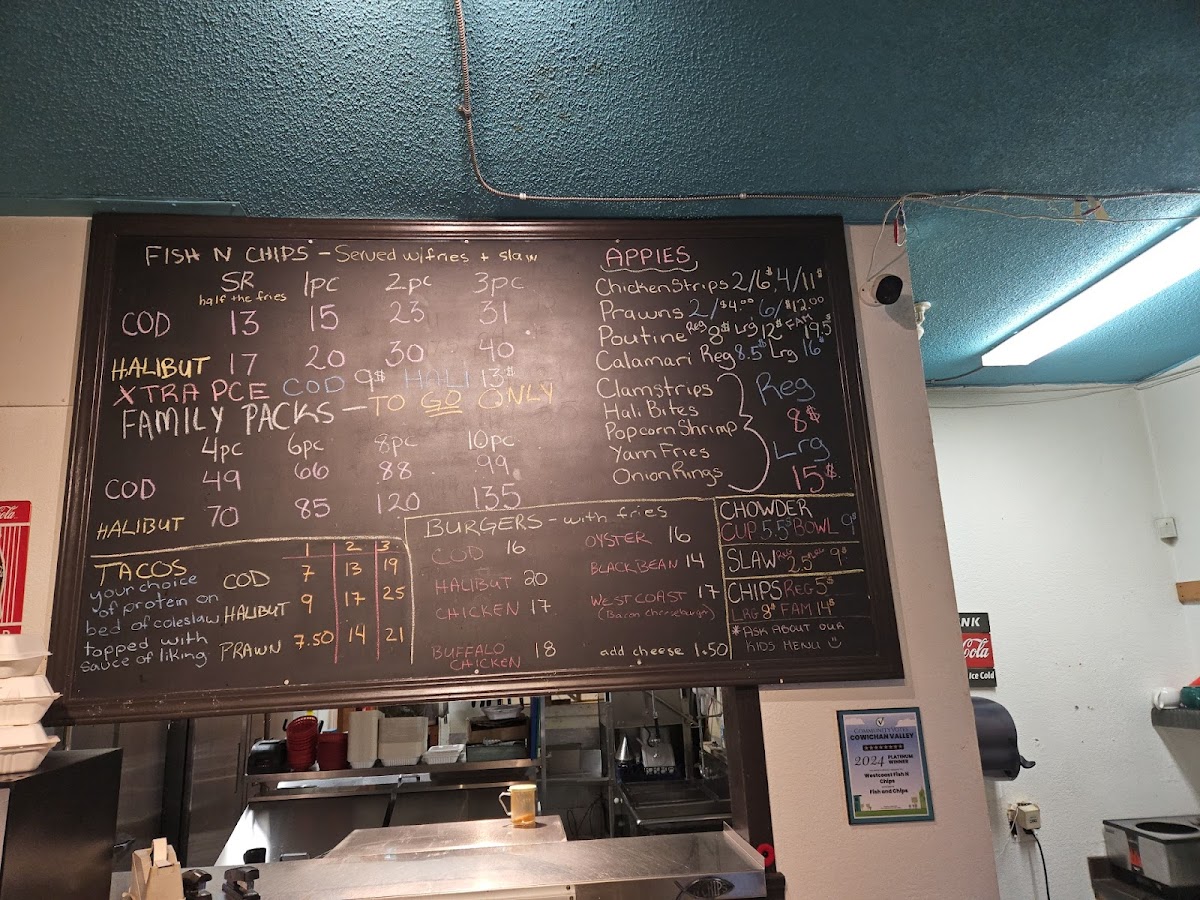 FISH N CHIPS - Served w/fries + slaw
SR 1pc 2pc 3pc
half the fries
COD 13 15 23 31
HALIBUT 17 20 30 40
XTRA PCE COD 9$ HALI 13$
FAMILY PACKS - TO GO ONLY
4pc 6pc 8pc 10pc
COD 49 66 88 99
HALIBUT 70 85 120 135
TACOS
your choice
of protein on
bed of coleslaw
topped with
sauce of liking
1 2 3
COD 7 13 19
HALIBUT 9 17 25
PRAWN 7.50 14 21
BURGERS - with fries
COD 16
HALIBUT 20
CHICKEN 17
BUFFALO
CHICKEN 18
OYSTER 16
BLACKBEAN 14
WESTCOAST 17
(Bacon cheeseburger)
add cheese 1.50
APPIES
Chicken Strips 2/6$ 4/11$
Prawns 2/$4.00 6/$12.00
Poutine Reg 8$ Lrg 12$ FAM 19.5
Calamari Reg 8.5$ Lrg 16$
Clamstrips
Hali Bites
Popcorn Shrimp
Yam Fries
Onion Rings
Reg
8$
Lrg
15$
CHOWDER
CUP 5.5$ BOWL 9$
SLAW Reg 2.5 9$
CHIPS REG 5$
LRG 8$ FAM 14$
*ASK ABOUT OUR
KIDS MENU
COMMUNITY VOTES
COWICHAN VALLEY
2024 PLATINUM
WINNER
Westcoast Fish N
Chips
Fish and Chips
NK
Coca-Cola
Ice Cold